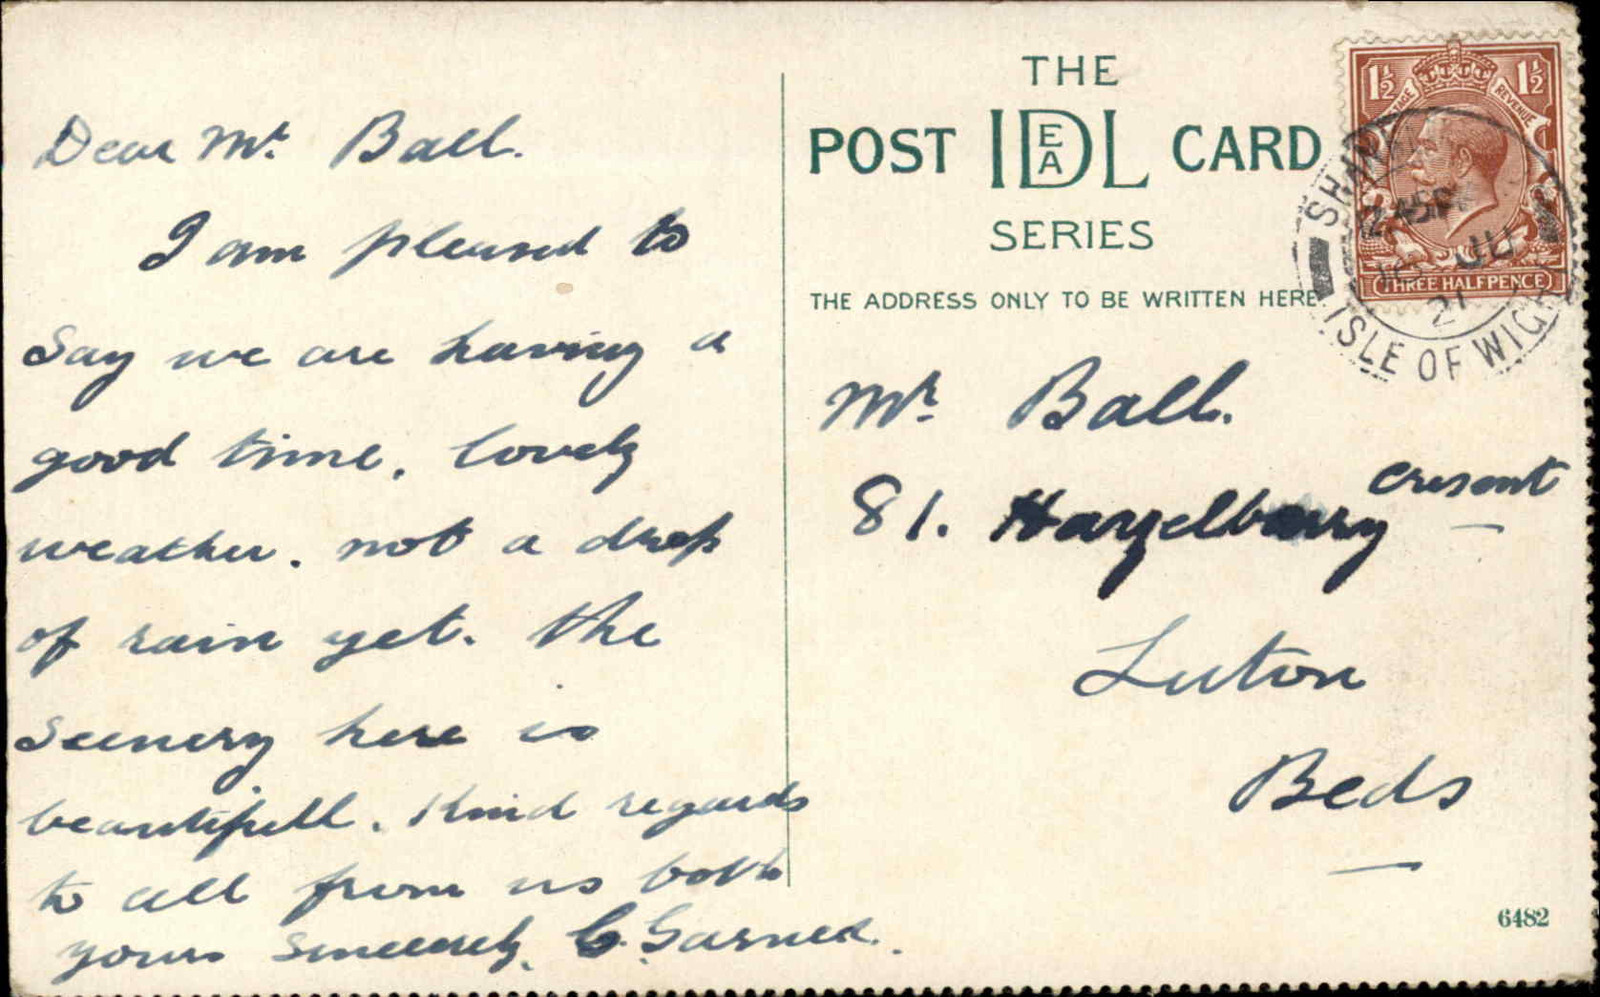 Dear Mr. Ball.
I am pleased to
Say we are having a
good time. lovely
weather. not a drop
of rain yet. the
scenery here is
beautifull. Kind regards
to all from us both
yours Sincerely.
THE
POST IDEAL CARD
SERIES
THE ADDRESS ONLY TO BE WRITTEN HERE.
1½ 1½
POSTAGE REVENUE
THREE HALFPENCE
12.45PM
JU
21
ISLE OF WIGHT
Mr. Ball.
81. Hazelbury Cresent
Luton
Beds
6482